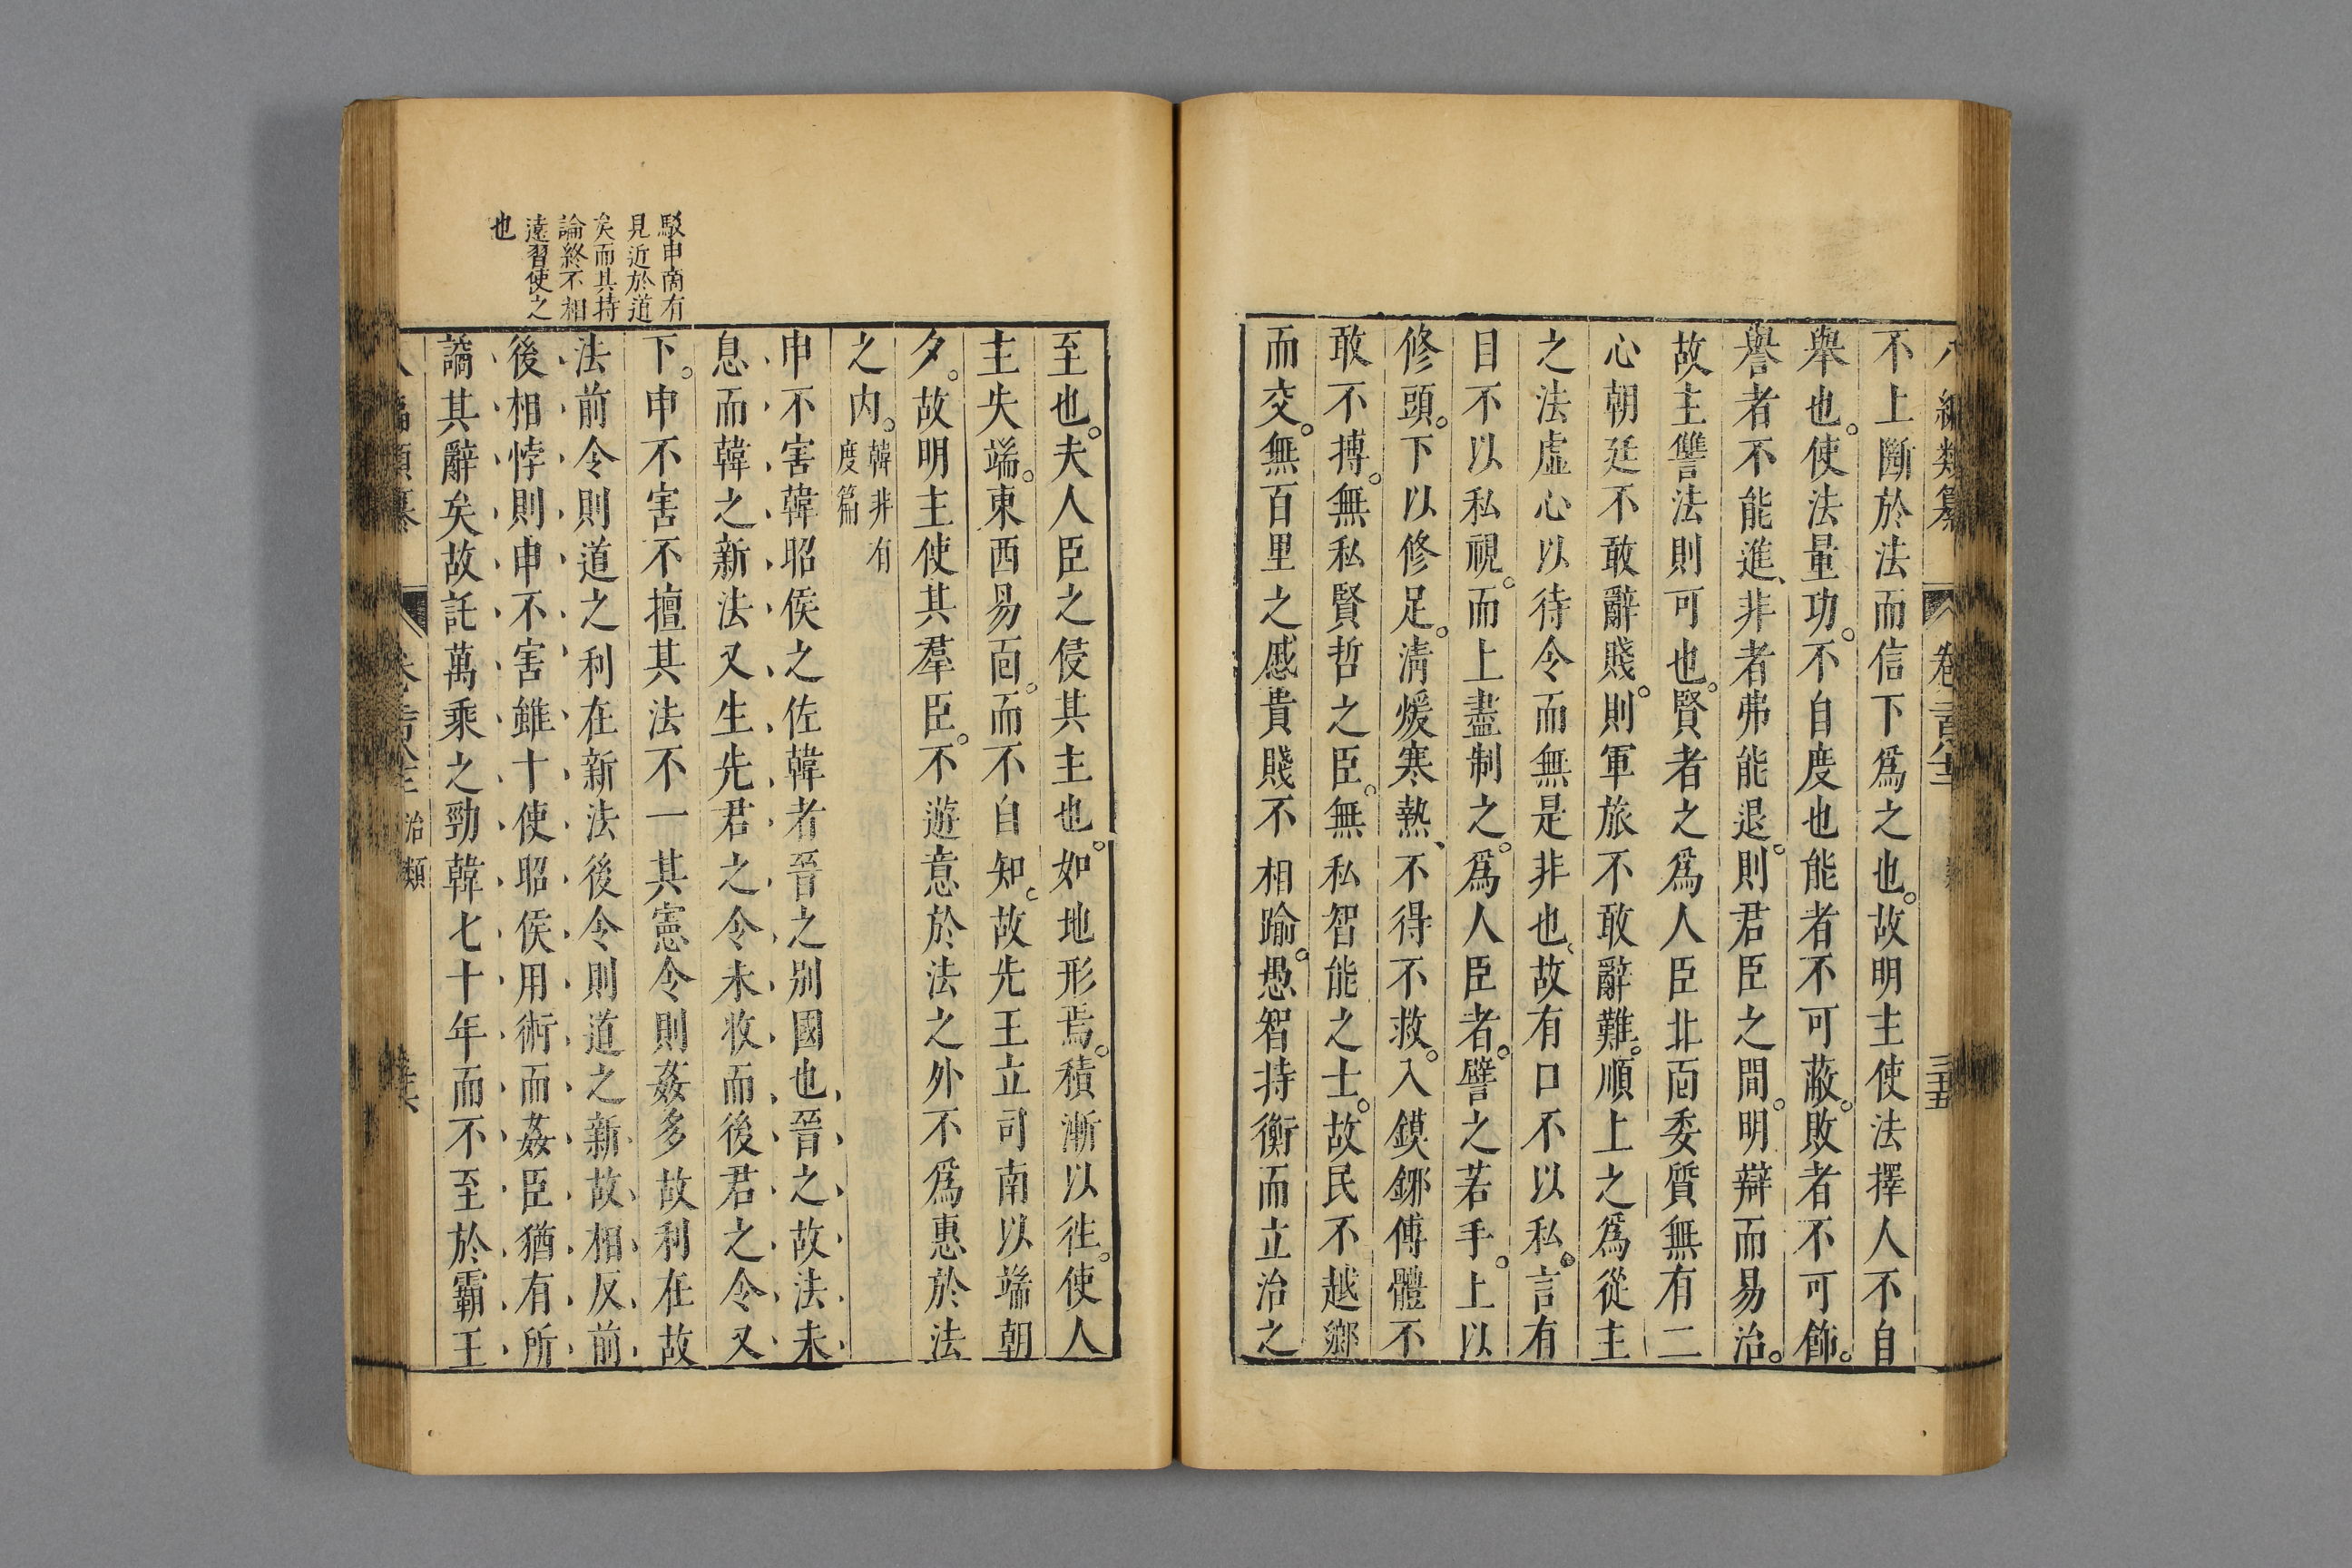 編類纂 卷
不上斷於法而信下爲之也。故明主使法擇人不自
舉也。使法量功。不自度也能者不可蔽。敗者不可飾。
譽者不能進、非者弗能退。則君臣之間。明辯而易治。
故主讐法則可也。賢者之爲人臣北面委質無有二
心朝廷不敢辭賤。則軍旅不敢辭難。順上之爲從主
之法虛心以待令而無是非也、故有口不以私。言有
目不以私視。而上盡制之。爲人臣者。譬之若手。上以
修頭。下以修足。清煖寒熱、不得不救。入鏌鎁傅體不
敢不搏。無私賢哲之臣。無私智能之士。故民不越鄉
而交。無百里之慼貴賤不相踰。愚智持衡而立治之
至也。夫人臣之侵其主也。如地形焉。積漸以往。使人
主失端。東西易面。而不自知。故先王立司南以端朝
夕。故明主使其羣臣。不遊意於法之外不爲惠於法
之內。韓非有
度篇
申不害韓昭侯之佐韓者晉之別國也晉之故法未
息而韓之新法又生先君之令未收而後君之令又
下。申不害不擅其法不一其憲令則姦多故利在故
法前令則道之利在新法後令則道之新故相反前
後相悖則申不害雖十使昭侯用術而姦臣猶有所
譎其辭矣故託萬乘之勁韓七十年而不至於霸王
駁申商有
見近於道
矣而其持
論終不相
遠習使之
也
治類